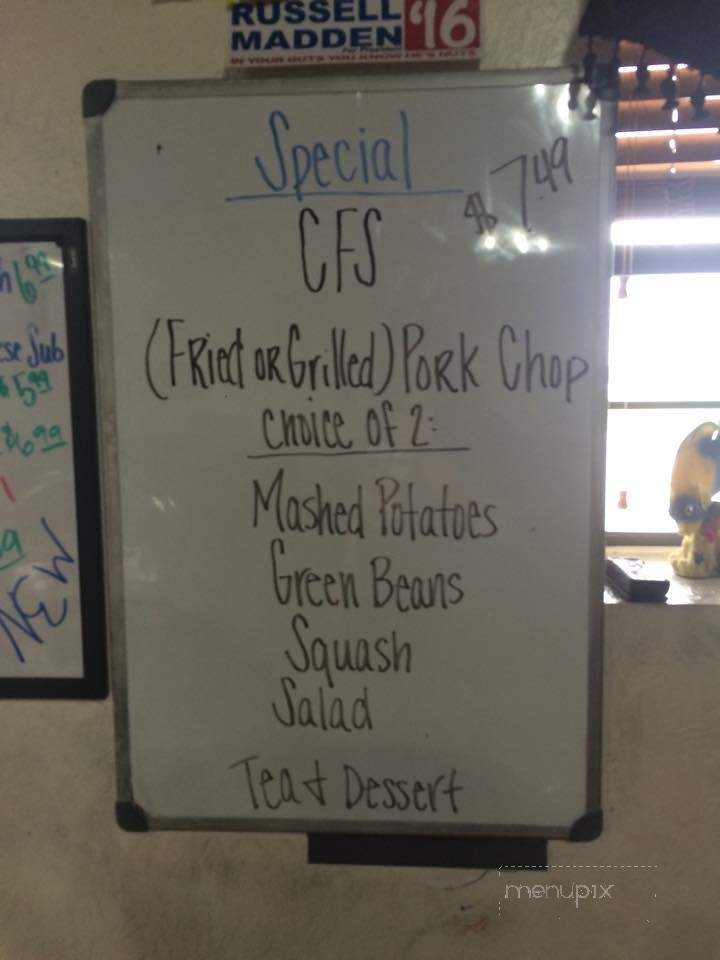 RUSSELL
MADDEN '16
IN YOUR GUTS YOU KNOW HE'S NUTS
Special
$7.49
CFS
(Fried or Grilled) Pork Chop
Choice of 2:
Mashed Potatoes
Green Beans
Squash
Salad
Tea & Dessert
6.99
Sub
5.99
$6.99
NEW
menupix